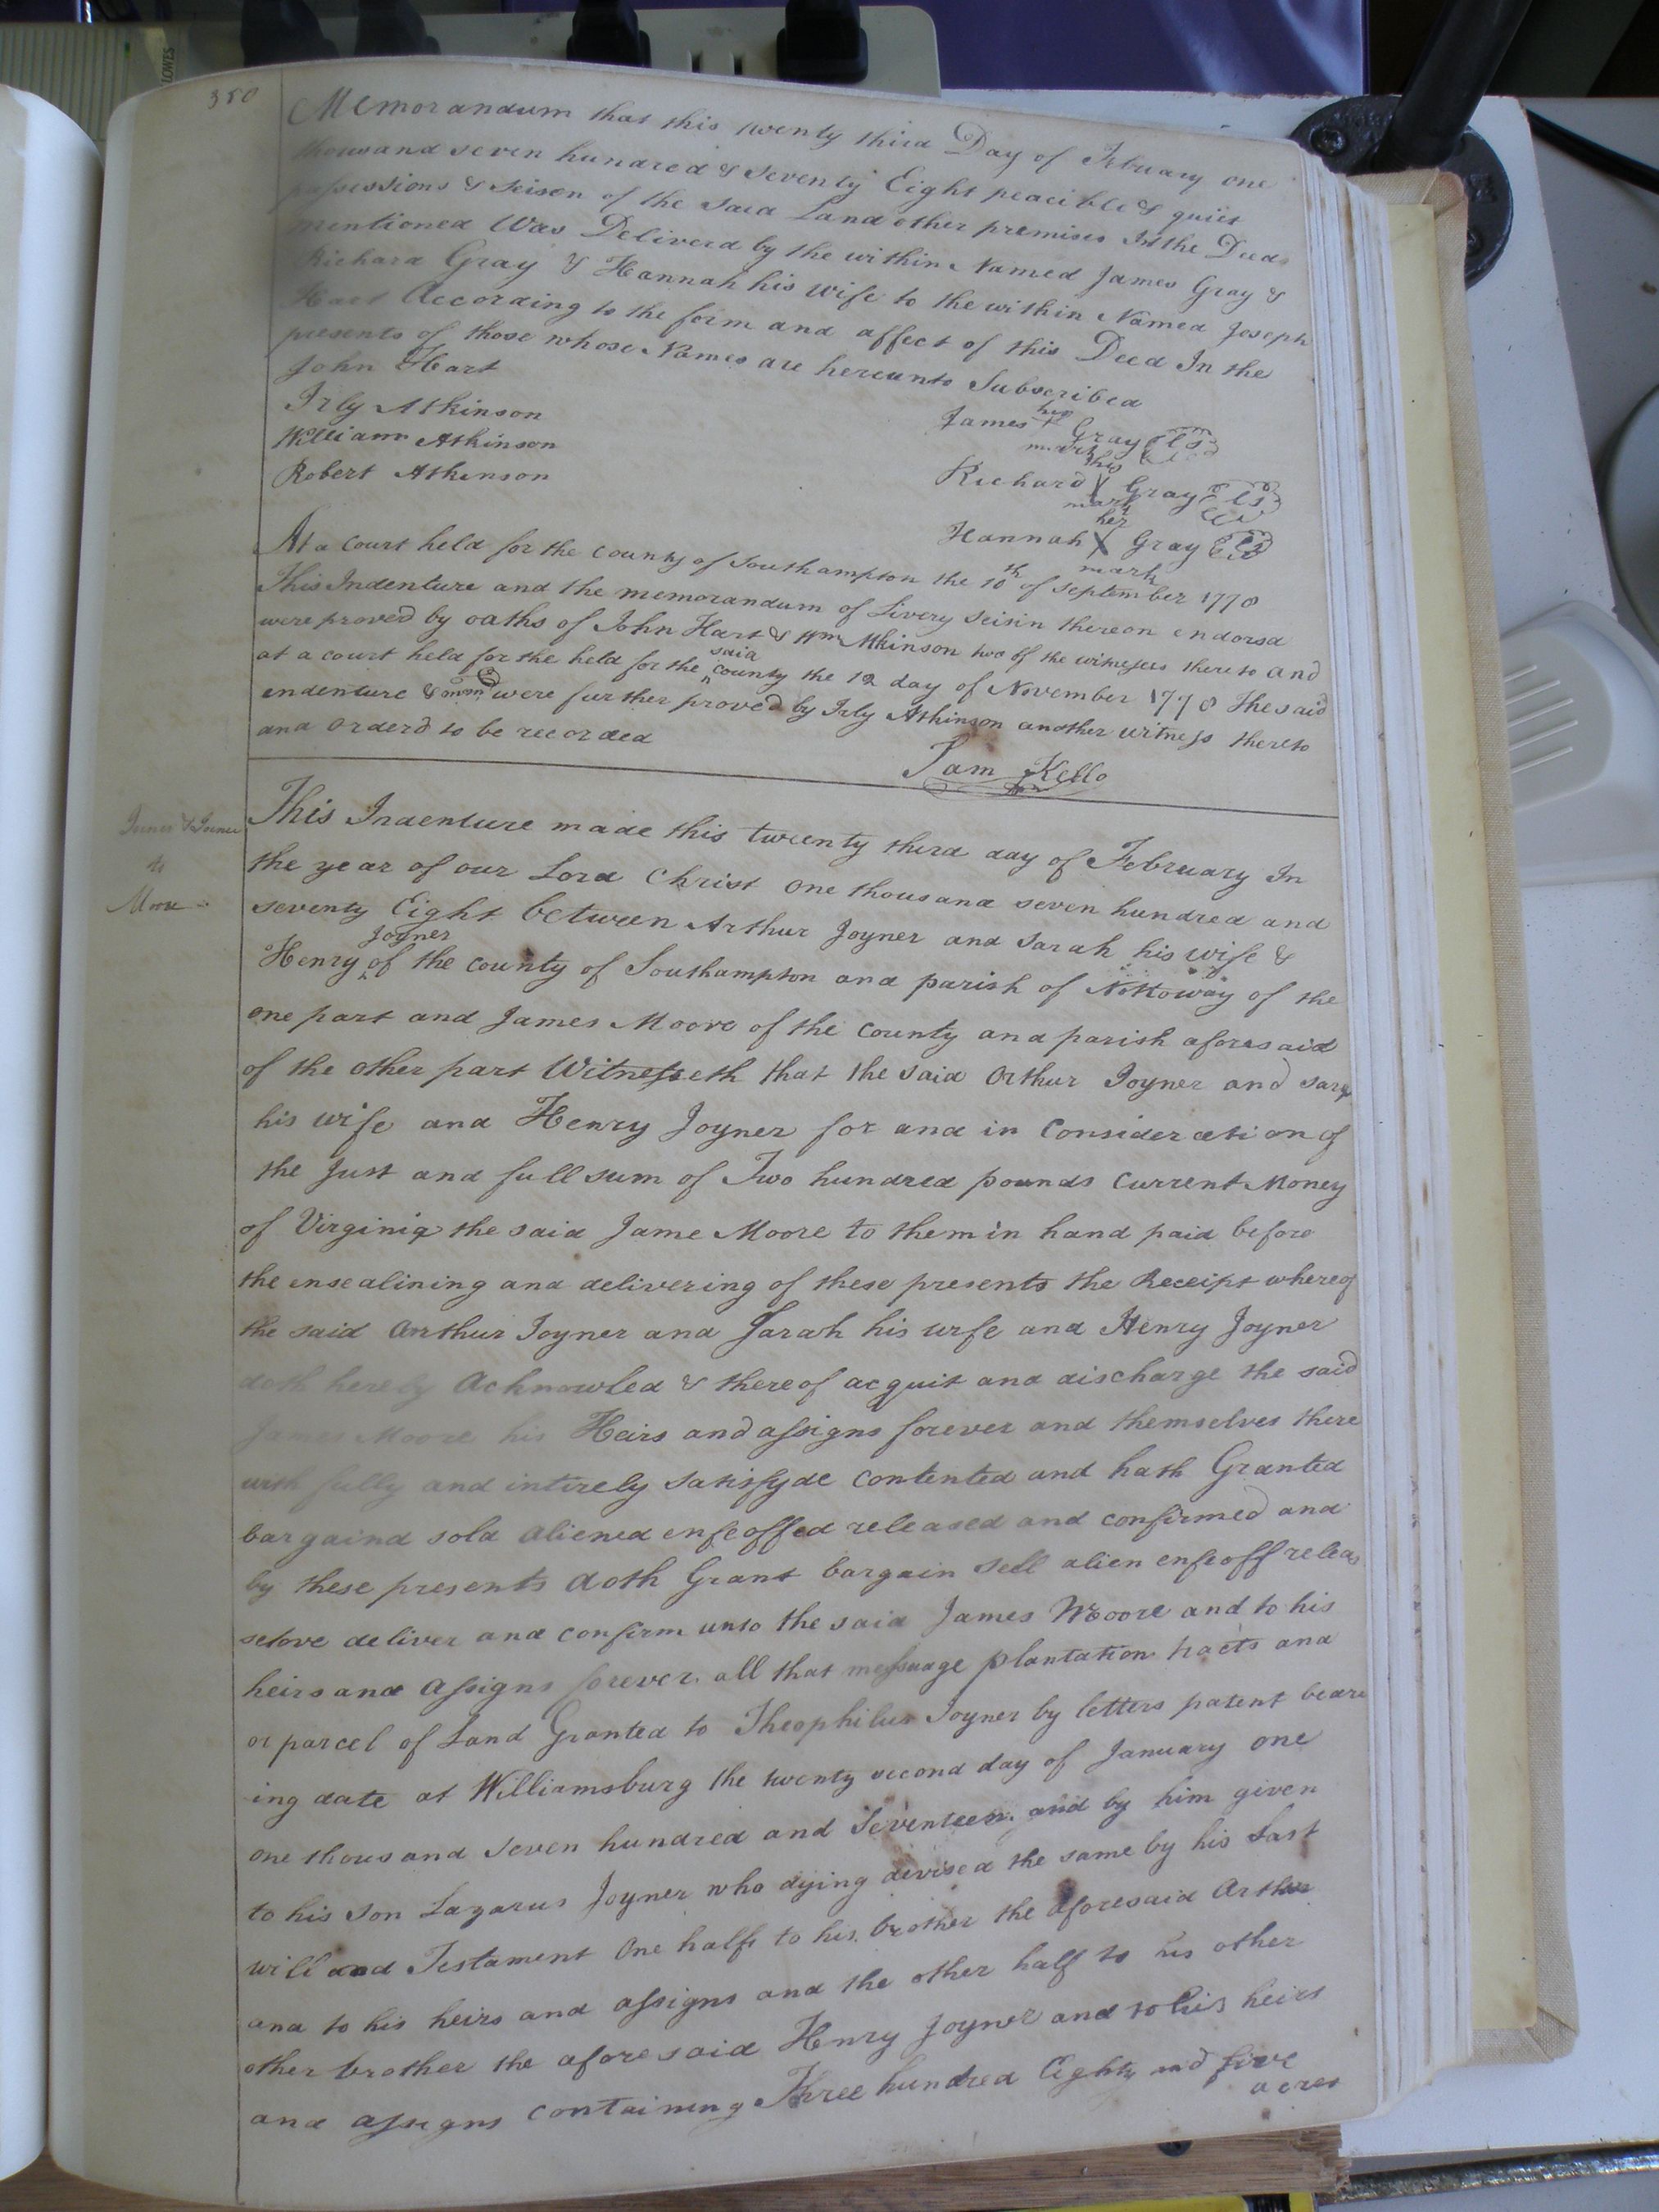 350
Memorandum that this twenty third Day of Febuary one
thousand seven hundred & seventy Eight peacible & quiet
possessions & Seisen of the said Land other premises In the Deeds
mentioned Was Deliverd by the within Named James Gray &
Richard Gray & Hannah his wife to the within Named Joseph
Hart According to the form and affect of this Deed In the
presents of those whose Names are hereunto Subscribed
John Hart
Irly Atkinson
William Atkinson
Robert Atkinson
his
James + Gray ls
mark
his
Richard X Gray ls
mark
her
Hannah X Gray ls
mark
At a Court held for the County of Southampton the 10th of September 1778
This Indenture and the memorandum of Livery seisin thereon endorsd
were proved by oaths of John Hart & Wm Atkinson two of the witnesses thereto and
said
at a court held for the held for the county the 12 day of November 1778 The said
endenture & were further proved by Irly Atkinson another witness thereto
and orderd to be recorded
Sam Kello
to
Moore
This Indenture made this twenty third day of February In
the year of our Lord Christ one thousand seven hundred and
seventy Eight between Arthur Joyner and Sarah his wife &
Joyner
Henry of the county of Southampton and parish of Nottoway of the
one part and James Moore of the County and parish aforesaid
of the other part Witnesseth that the said Arthur Joyner and Sarah
his wife and Henry Joyner for and in Consideration of
the Just and full sum of Two hundred pounds Current Money
of Virginia the said Jame Moore to them in hand paid before
the ensealining and delivering of these presents the Receipt whereof
the said Arthur Joyner and Sarah his wife and Henry Joyner
doth hereby Acknowled & thereof acquit and discharge the said
James Moore his Heirs and assigns forever and themselves there
with fully and intirely satisfyde contented and hath Granted
bargaind sold aliened enfeoffed released and confirmed and
by these presents doth Grant bargain sell alien enfeoff releas
selove deliver and confirm unto the said James Moore and to his
heirs and assigns forever all that messuage plantation tracts and
or parcel of Land Granted to Theophilus Joyner by letters patent beare
ing date at Williamsburg the twenty second day of January one
one thousand seven hundred and Seventeen and by him given
to his son Lazarus Joyner who dying devised the same by his Last
will and Testament One halfe to his brother the aforesaid Arthur
and to his heirs and assigns and the other half to his other
other brother the aforesaid Henry Joyner and to his heirs
and assigns containing Three hundred Eighty and five
acres